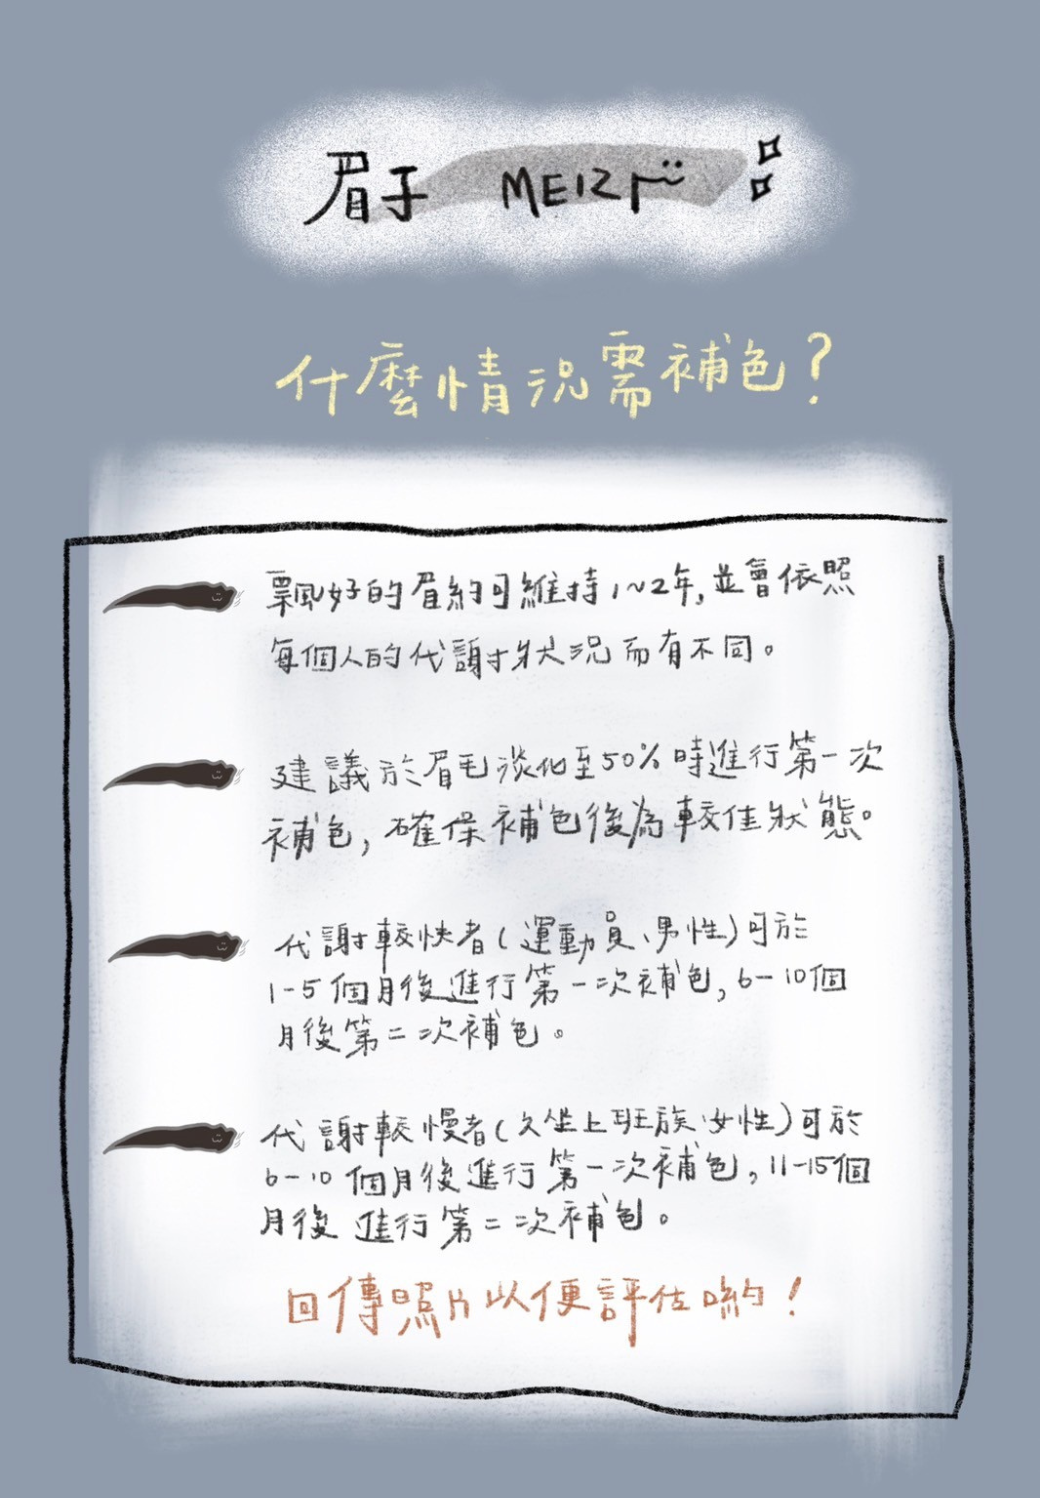 眉子 MEIZI
什麼情況需補色?
飄好的眉約可維持1~2年,並會依照
每個人的代謝狀況而有不同。
建議於眉毛淡化至50%時進行第一次
補色,確保補色後為較佳狀態。
代謝較快者(運動員、男性)可於
1-5個月後進行第一次補色,6-10個
月後第二次補色。
代謝較慢者(久坐上班族、女性)可於
6-10個月後進行第一次補色,11-15個
月後進行第二次補色。
回傳照片以便評估喲!